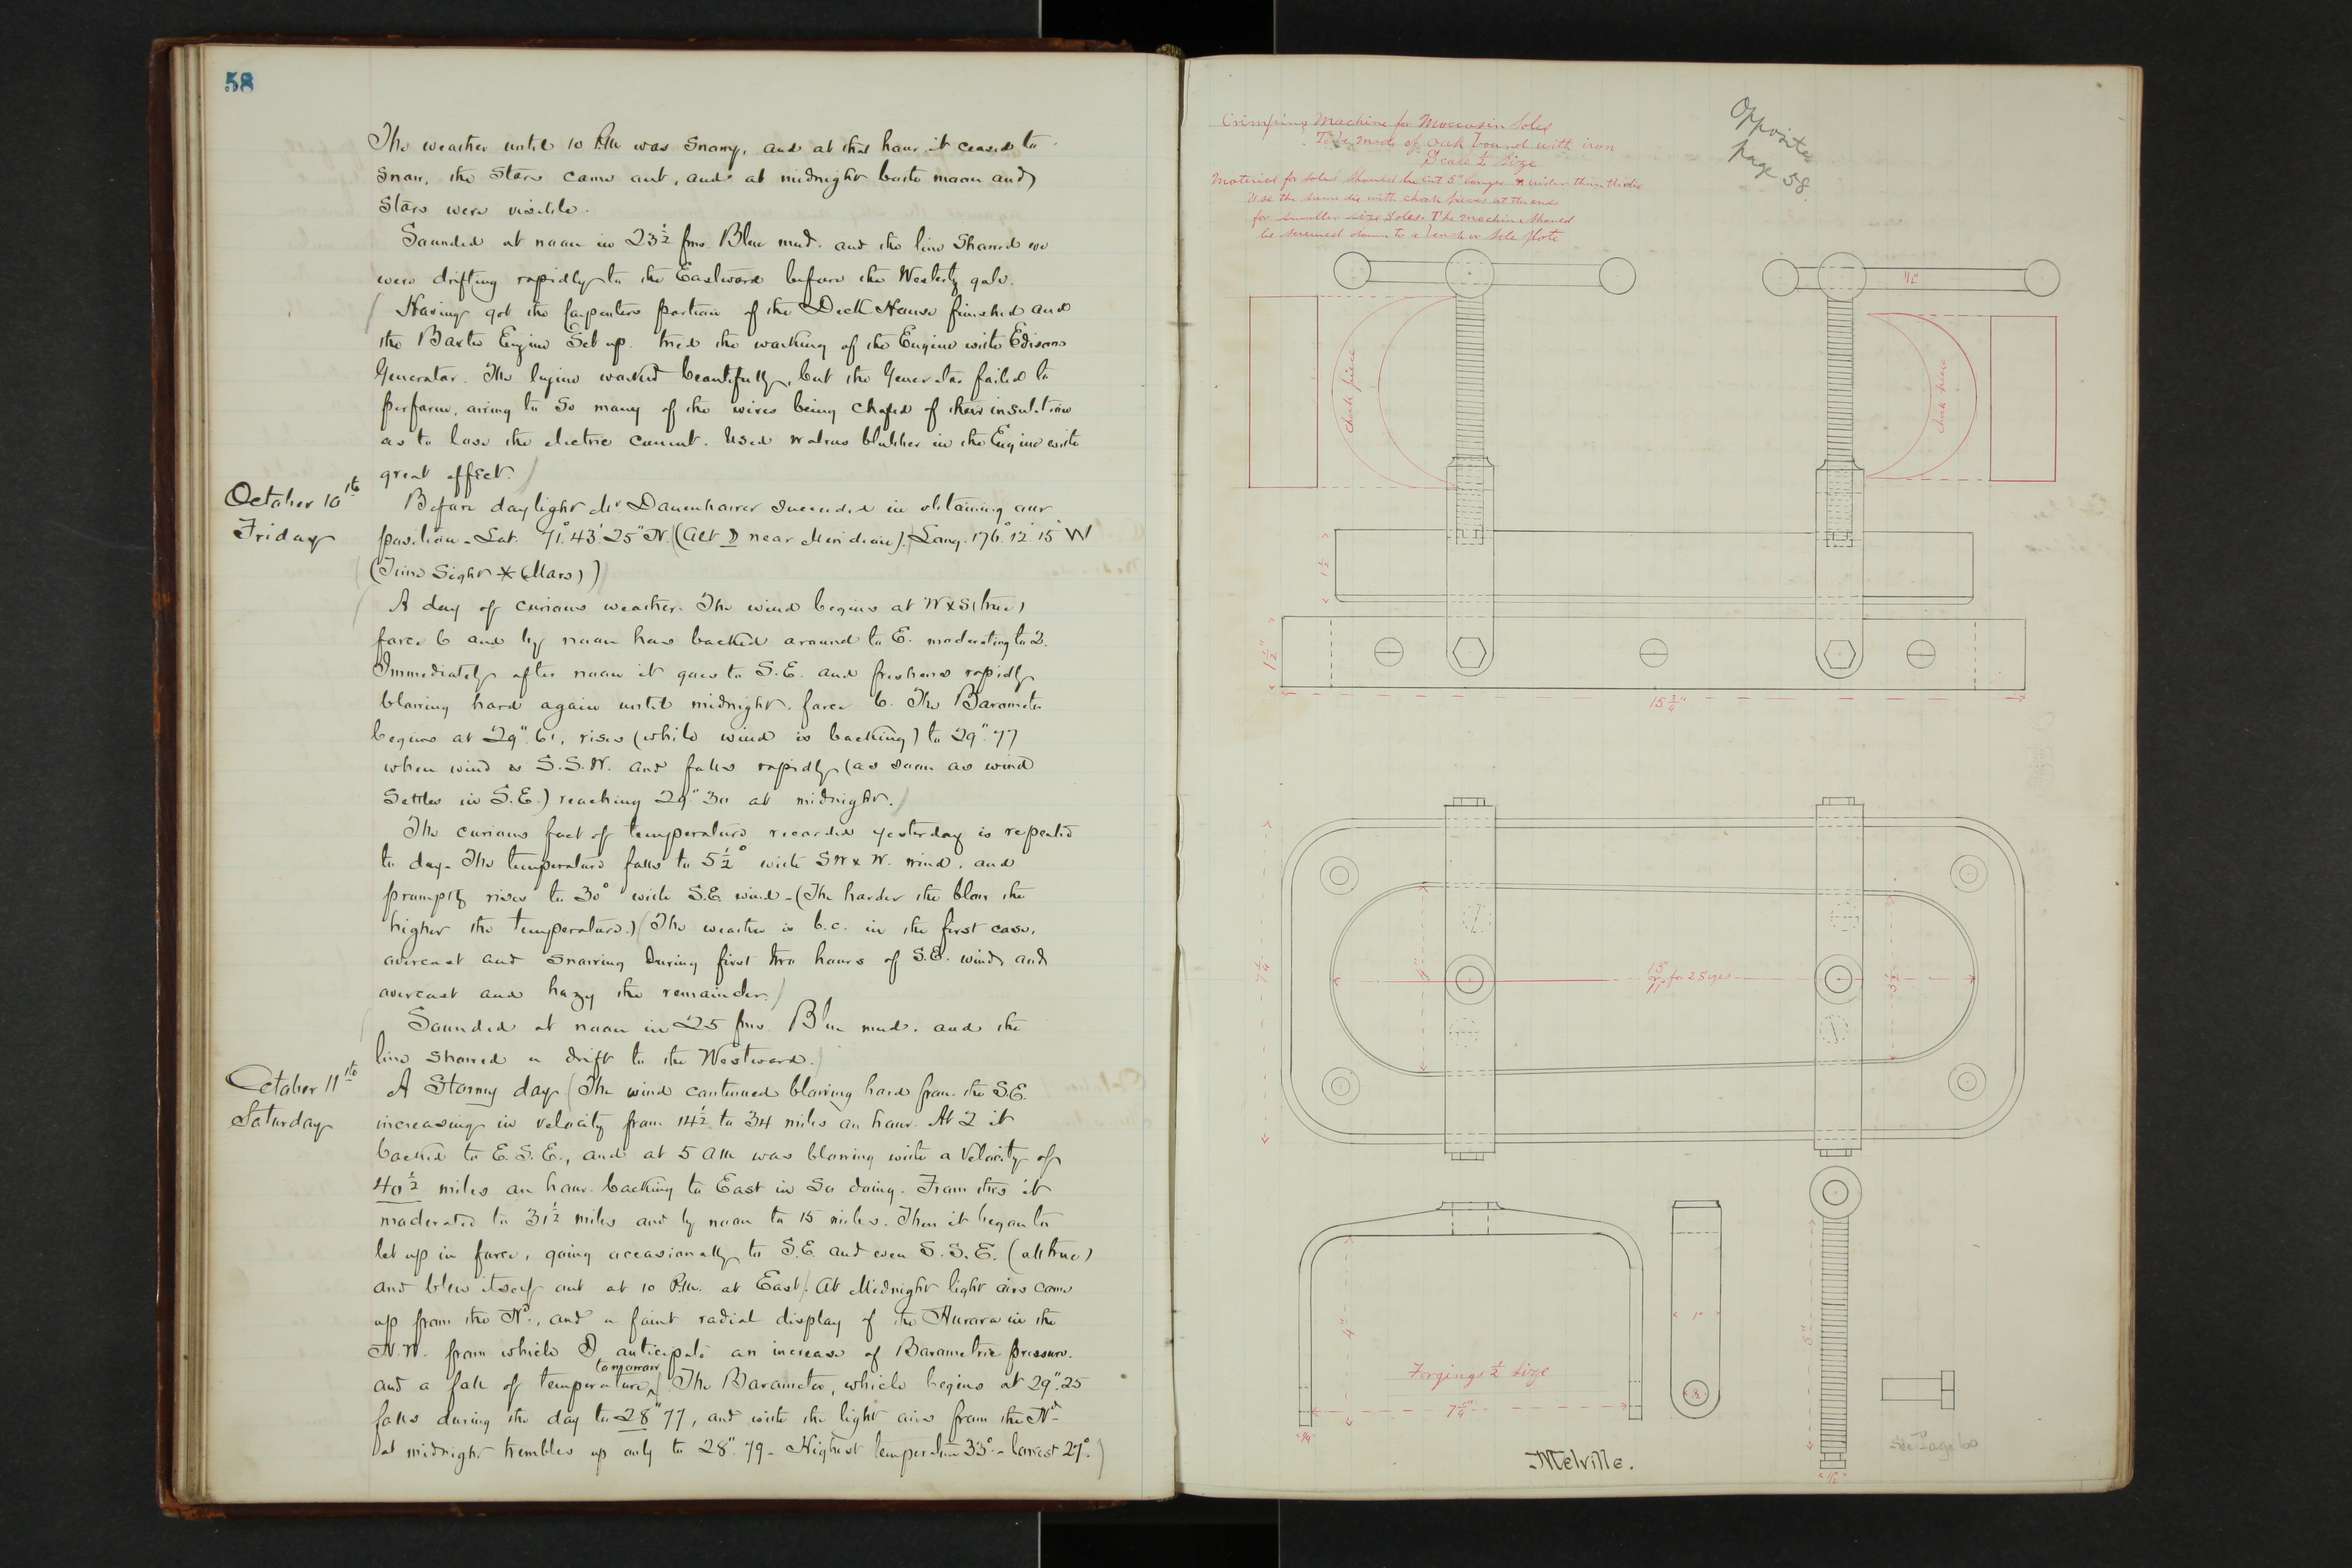 58
The weather until 10 P.M. was snowy, and at that hour it ceased to
snow, the stars came out, and at midnight both moon and
stars were visible.
Sounded at noon in 23½ fms. Blue mud. and the line showed we
were drifting rapidly to the Eastward before the Westerly gale.
Having got the Carpenters portion of the Deck House finished and
the Baxter Engine Set up. tried the working of the Engine with Edisons
Generator. The Engine worked beautifully, but the Generator failed to
perform, owing to so many of the wires being chafed of their insulation
as to lose the electric current. Used walrus blubber in the Engine with
great effect.
October 10th
Friday
Before daylight Mr Danenhower succeeded in obtaining our
position - Lat. 71°.43'.25" N. (Alt D near Meridian). Long. 176°.12'.15" W
(Time Sight * (Mars))
A day of curious weather. The wind begins at W x S (true)
force 6 and by noon has backed around to E. moderating to 2.
Immediately after noon it goes to S.E. and freshens rapidly
blowing hard again until midnight. force 6. The Barometer
begins at 29".61, rises (while wind is backing) to 29".77
when wind is S.S.W. and falls rapidly (as soon as wind
Settles in S.E.) reaching 29".30 at midnight.
The curious fact of temperature recorded yesterday is repeated
to day - The temperature falls to 5½° with SW x W. wind. and
promptly rises to 30° with S.E. wind - (The harder the blow the
higher the temperature.) (The weather is b.c. in the first case,
overcast and snowing during first two hours of S.E. wind, and
overcast and hazy the remainder.)
Sounded at noon in 25 fms. Blue mud. and the
line showed a drift to the Westward.
October 11th
Saturday
A Stormy day (The wind continued blowing hard from the S.E.
increasing in velocity from 14½ to 34 miles an hour. At 2 it
backed to E.S.E., and at 5 AM was blowing with a Velocity of
40½ miles an hour. backing to East in so doing. From this it
moderated to 31½ miles and by noon to 15 miles. Then it began to
let up in force, going occasionally to S.E. and even S.S.E. (all true)
and blew itself out at 10 P.M. at East). At Midnight light airs came
up from the Nd., and a faint radial display of the Aurora in the
N.W. from which I anticipate an increase of Barometric pressure.
tomorrow
and a fall of temperature ^ (The Barometer, which begins at 29".25
falls during the day to 28".77, and with the light airs from the Nd
at midnight trembles up only to 28".79 - Highest temperature 33° - lowest 27°.)
Crimping Machine for Moccasin Soles
To be made of Oak bound with iron
Scale ½ Size
Material for soles should be cut 5" longer & wider than the die
Use the same die with chock pieces at the ends
for smaller size Soles. The machine should
be screwed down to a bench or
Opposite
page 58.
chock piece
½"
chock piece
1½"
1½"
15¾"
4"
15"
or for 2 Sizes
11"
3½"
4"
Forgings ½ Size
7¼"
1"
5"
Melville.
See Page 60